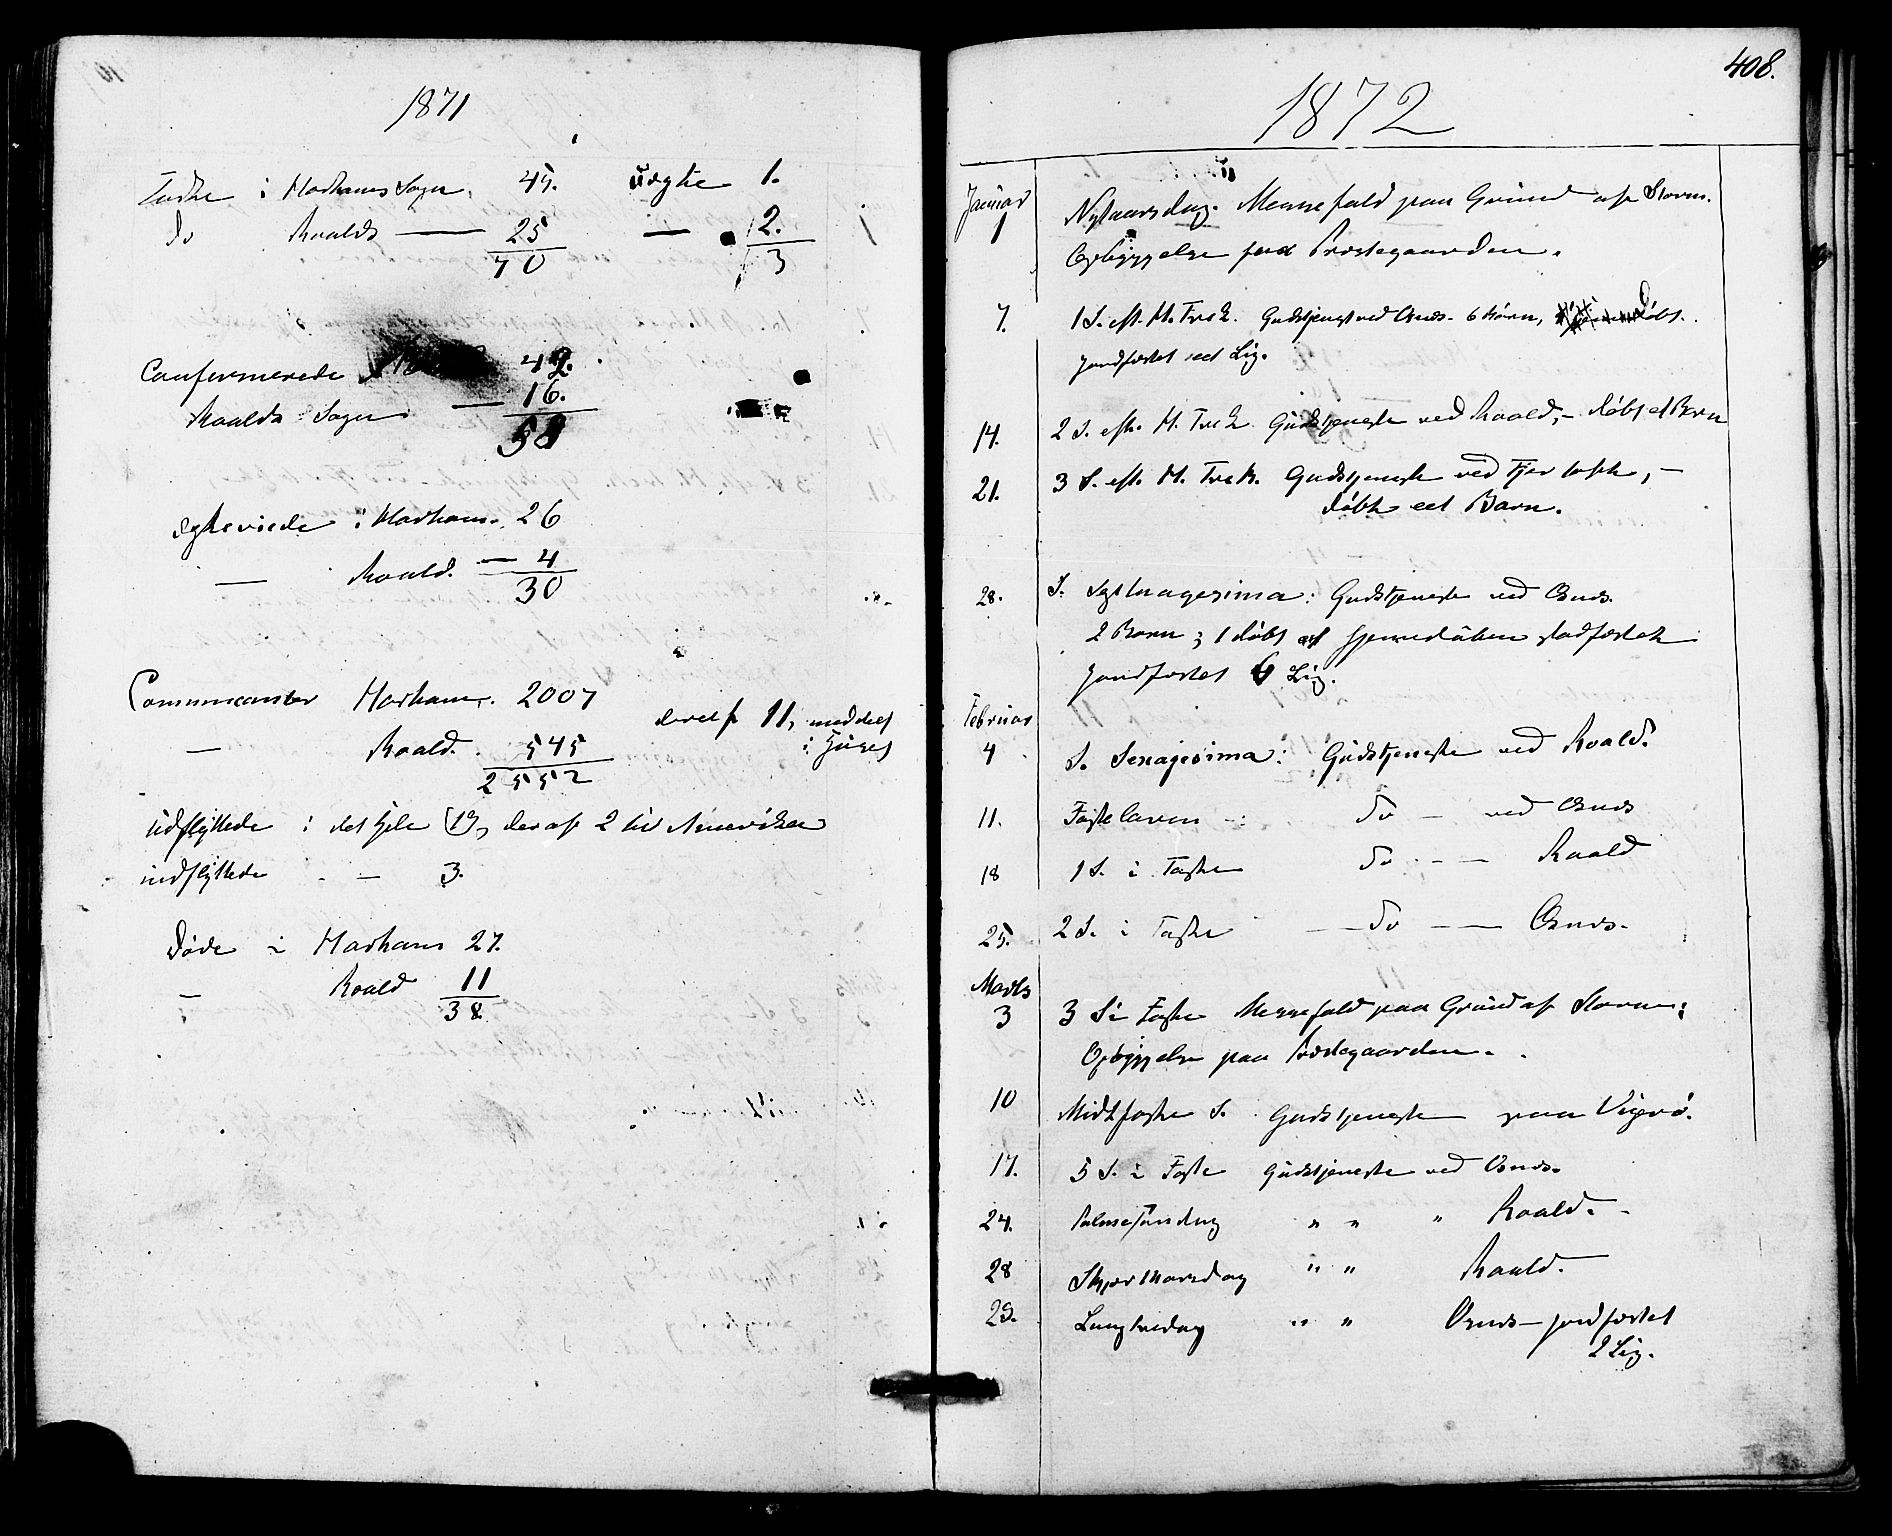 1871
Fødte i Harhams Sogn. 45. Uægte 1.
do Roalds — 25 — 2.
70 3
Confirmerede 42.
Roalds Sogn — 16.
58
Egteviede i Harham. 26
— Roald. — 4
30
Communicanter Harham. 2007
— Roald. 545
2552
deraf 11, meddelt
i Huset
Udflyttede i det hele 19, deraf 2 til Amerika
indflyttede - — 3.
Døde i Harham 27.
— Roald 11
38
408.
1872
Januar
1 Nytaarsdag. Messefald paa Grund af Storm.
Opbyggelse paa Præstegaarden.
7. 1 S. eft. H. Tre K. Gudstjenest ved Osnæs. 6 Børn, døbt.
jordfæstet eet Lig.
14. 2 S. eft. H. Tre K. Gudstjeneste ved Roald, — døbt et Barn
21. 3 S. eft. H. Tre K. Gudstjeneste ved Fjørtoft, —
døbt eet Barn.
28. S. Septuagesima: Gudstjeneste ved Osnæs.
2 Børn; 1 døbt et hjemmedøben stadfæstet
jordfæstet 6 Lig.
Februar
4 S. Sexagesima: Gudstjeneste ved Roald.
11. Fastelaven -: do — ved Osnæs
18 1 S. i Faste do - — Roald
25. 2 S. i Faste — do — — Osnæs.
Marts
3 3 S. i Faste Messefald paa Grund af Storm;
Opbyggelse paa Præstegaarden.
10 Midtfaste S. Gudstjeneste paa Vigrø.
17. 5 S. i Faste Gudstjeneste ved Osnæs.
24. Palmesøndag " " " Roald. -
28 Skjærthorsdag " " Roald. —
29. Langfredag " " Osnæs — jordfæstet
2 Lig.